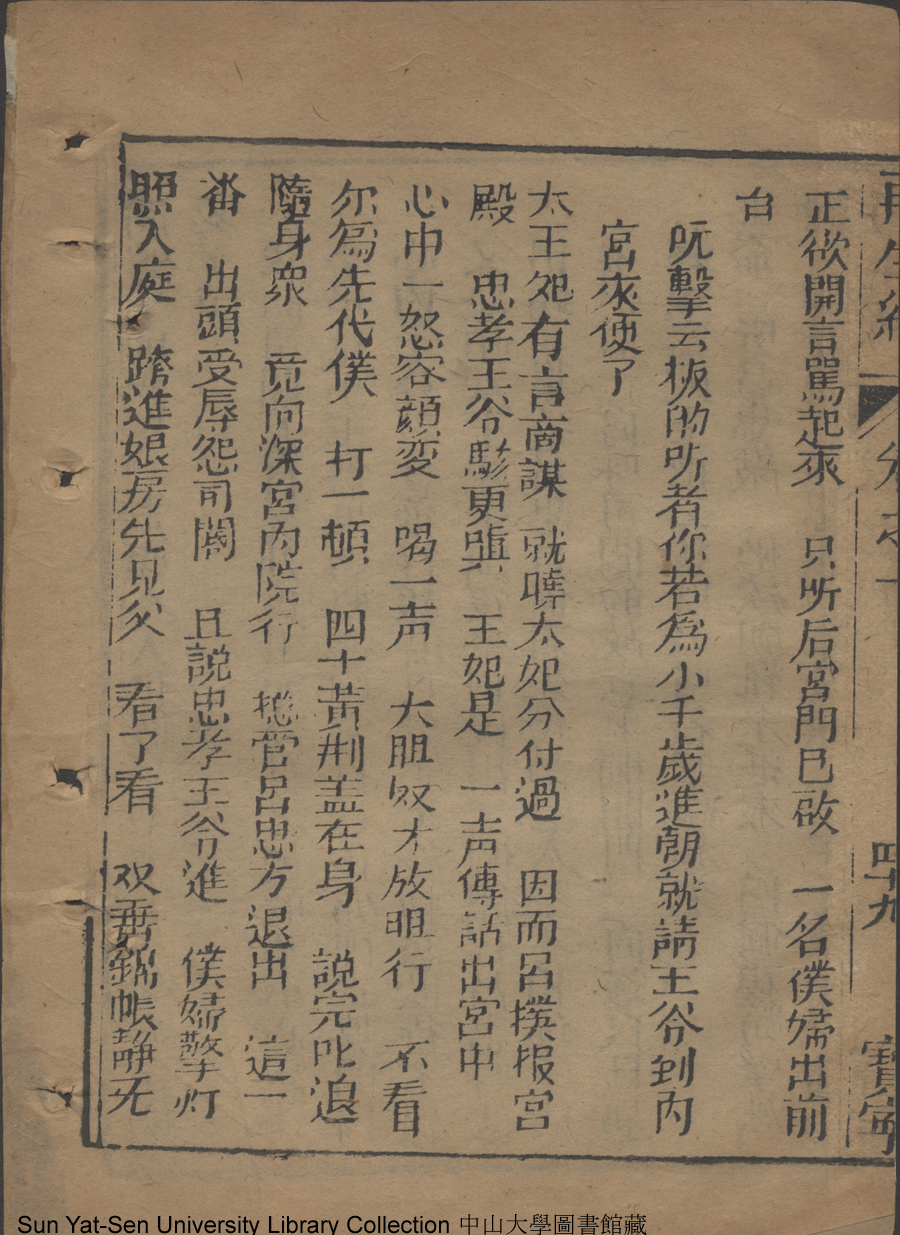 再生緣
四十九
寶寧
正欲開言駡起來　只所后宮門已啟　一名僕婦出前
台
吮擊云板的所者你若為小千歲進朝就請王爷到内
宮來便了
太王妃有言商謀　就曉太妃分付過　因而呂撲报宮
殿　忠孝王爷駭更　王妃是　一声傳話出宮中
心中一怒容顔变　喝一声　大胆奴才放胆行　不看
尔爲先代僕　打一頓　四十黃荆盖在身　說完叱退
隨身衆　竟向深宮内院行　捴管呂忠方退出　這一
畨　出頭受辱怨司閽　且說忠孝王爷進　僕婦擎灯
照入庭　跨進娘房先見父　看了看　双垂錦帳静无
Sun Yat-Sen University Library Collection 中山大學圖書館藏